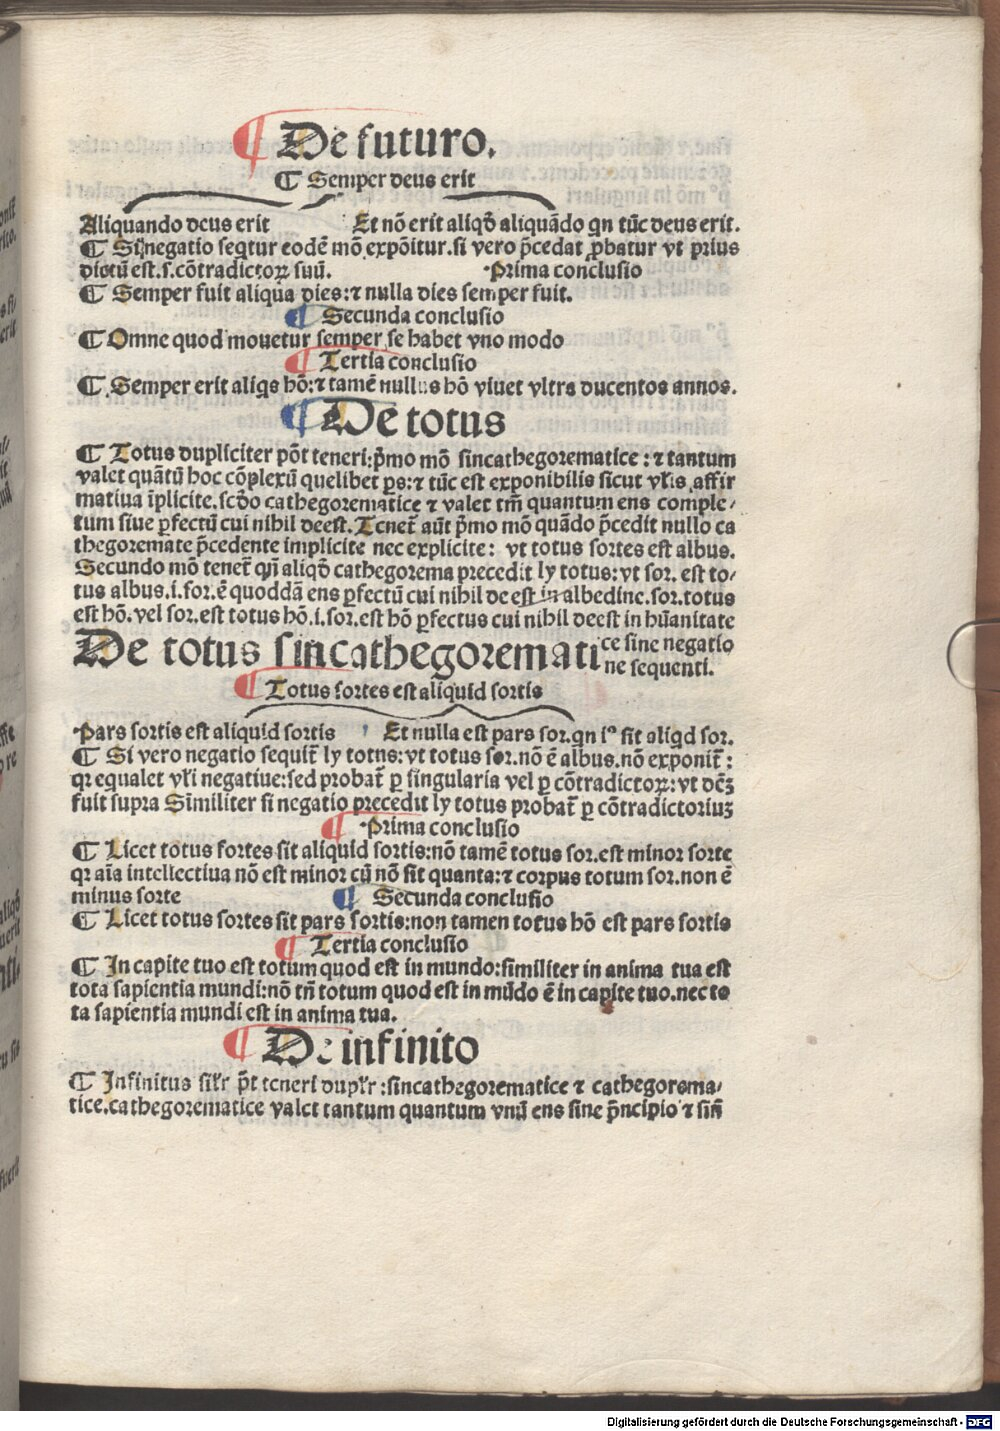 De futuro.
¶ Semper deus erit
Aliquando deus erit Et nō erit aliqđ aliquādo qn tūc deus erit.
¶ Si negatio seqtur eodē mō expōitur. si vero p̄cedat ꝓbatur vt prius
dictū est. s. cōtradictoꝝ suū. Prima conclusio
¶ Semper fuit aliqua dies: ⁊ nulla dies semper fuit.
Secunda conclusio
¶ Omne quod mouetur semper se habet vno modo
Tertia conclusio
¶ Semper erit aliqs hō: ⁊ tamē nullus hō viuet vltra ducentos annos.
De totus
¶ Totus dupliciter pōt teneri: p̄mo mō sincathegorematice: ⁊ tantum
valet quātū hoc cōplexū quelibet ꝑs: ⁊ tūc est exponibilis sicut vl̄is affir
matiua īplicite. scd̄o cathegorematice ⁊ valet tm̄ quantum ens comple-
tum siue ꝑfectū cui nihil deest. Tenet̄ aūt p̄mo mō quādo p̄cedit nullo ca
thegoremate p̄cedente implicite nec explicite: vt totus sortes est albus.
Secundo mō tenet̄ qn̄ aliqđ cathegorema precedit ly totus: vt sor. est to-
tus albus. i. sor. ē quoddā ens ꝑfectū cui nihil deest in albedine. sor. totus
est hō. vel sor. est totus hō. i. sor. est hō ꝑfectus cui nihil deest in hūanitate
De totus sincathegoremati ce sine negatio
ne sequenti.
Totus sortes est aliquid sortis
Pars sortis est aliquid sortis Et nulla est pars sor. qn iᵃ sit aliqd sor.
¶ Si vero negatio sequit̄ ly totus: vt totus sor. nō ē albus. nō exponit̄:
qr equalet vl̄i negatiue: sed probat̄ ꝑ singularia vel ꝑ cōtradictoꝝ: vt dc̄ꝫ
fuit supra Similiter si negatio precedit ly totus probat̄ ꝑ cōtradictoriuꝫ
Prima conclusio
¶ Licet totus sortes sit aliquid sortis: nō tamē totus sor. est minor sorte
qr aīa intellectiua nō est minor cū nō sit quanta: ⁊ corpus totum sor. non ē
minus sorte Secunda conclusio
¶ Licet totus sortes sit pars sortis: non tamen totus hō est pars sortis
Tertia conclusio
¶ In capite tuo est totum quod est in mundo: similiter in anima tua est
tota sapientia mundi: nō tn̄ totum quod est in mūdo ē in capite tuo. nec to
ta sapientia mundi est in anima tua.
De infinito
¶ Infinitus sil̄r p̄t teneri dupl̄r: sincathegorematice ⁊ cathegorema-
tice. cathegorematice valet tantum quantum vnū ens sine p̄ncipio ⁊ sin̄
Digitalisierung gefördert durch die Deutsche Forschungsgemeinschaft - DFG